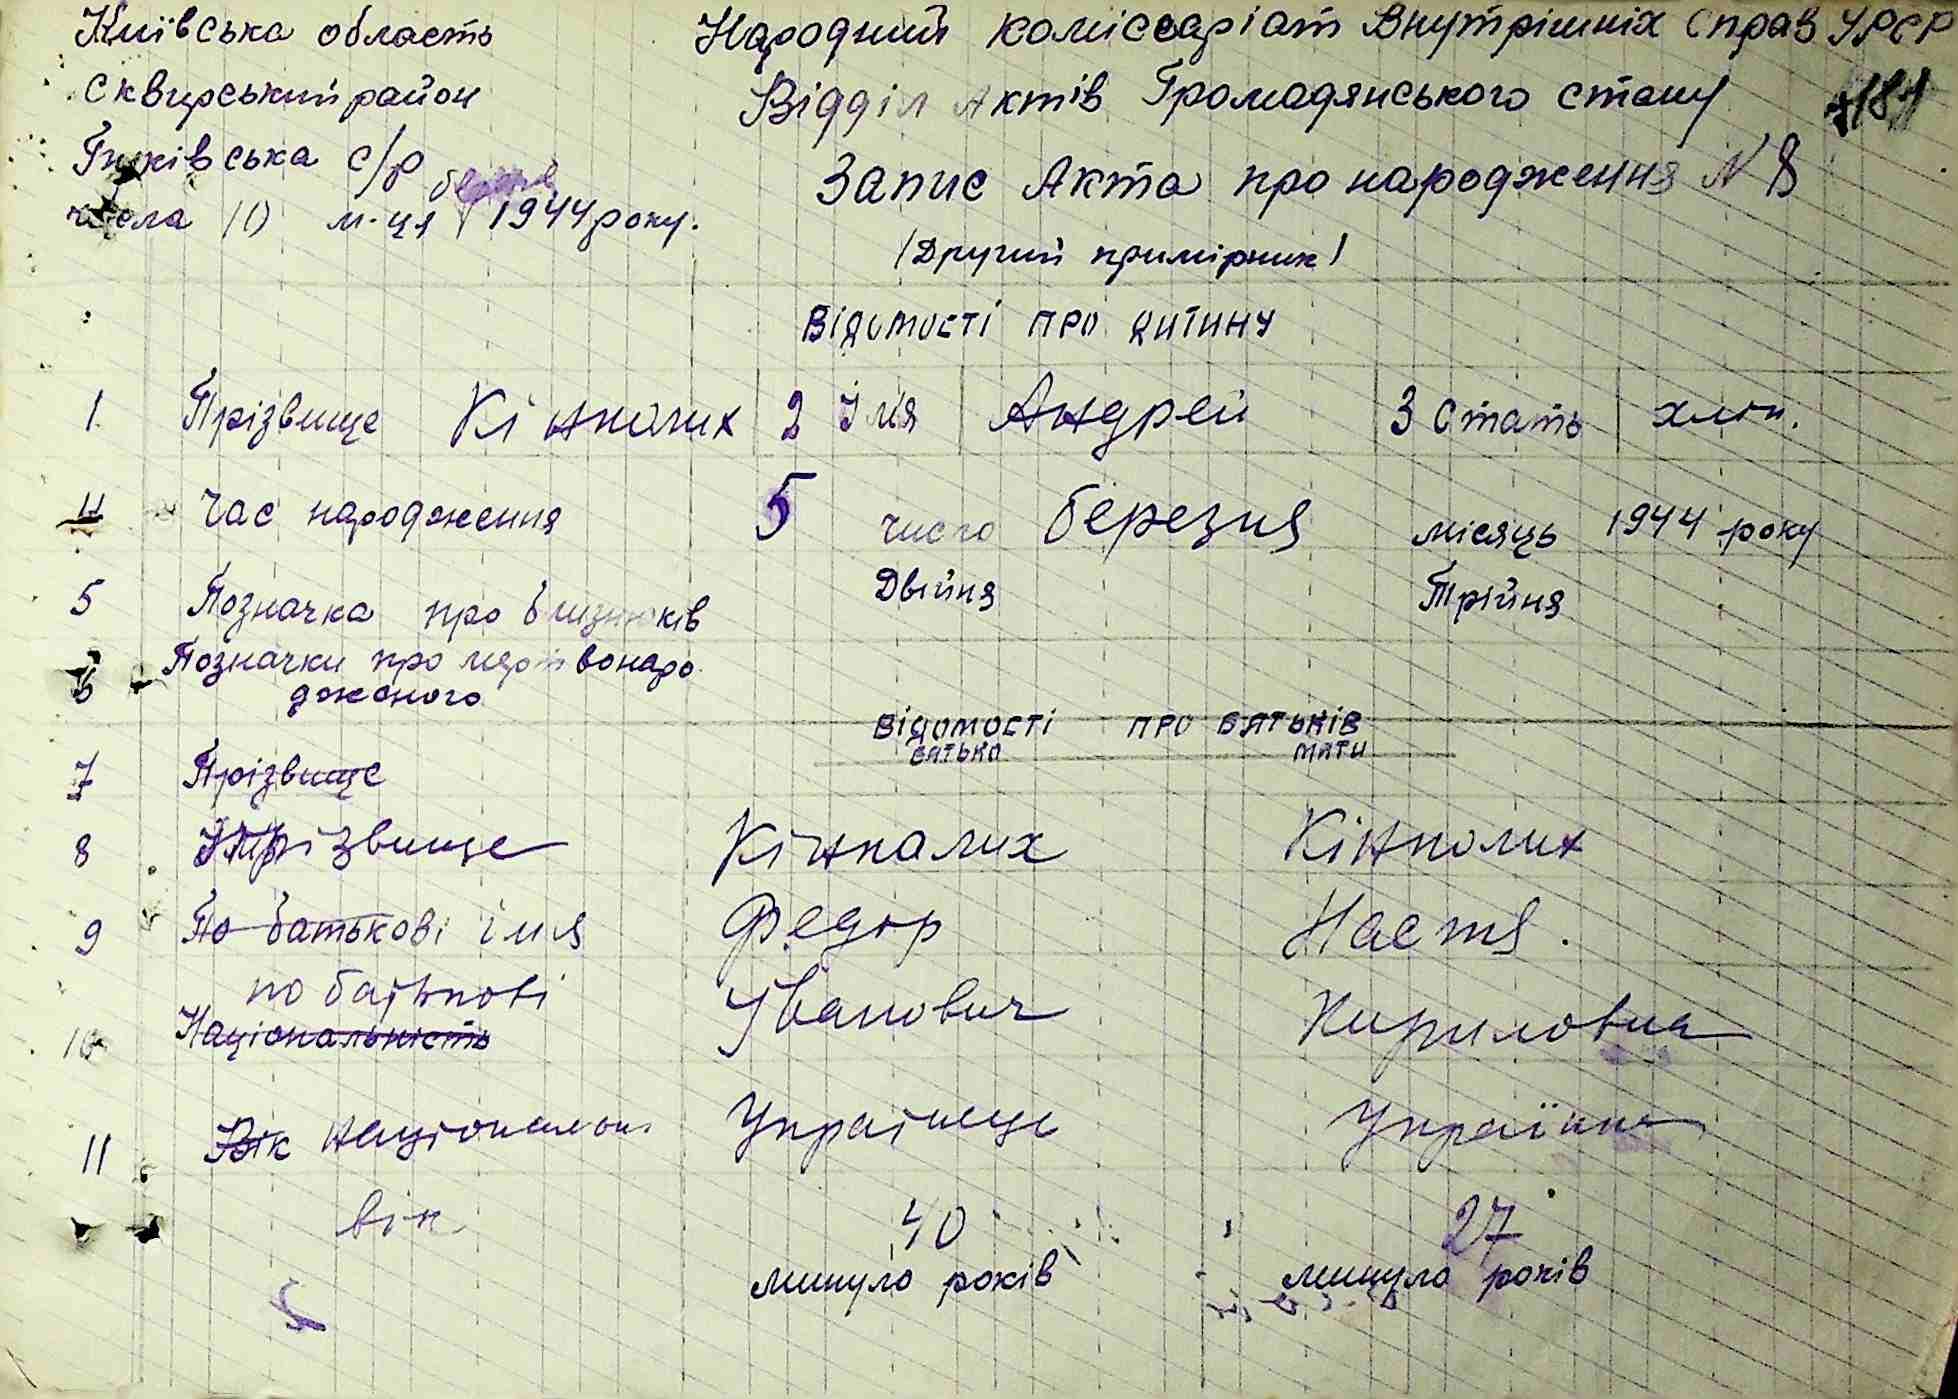 Київська область
Народний коміссаріат Внутрішніх Справ УРСР
Сквирський район
Відділ Актів Громадянського стану
с/р
Запис Акта про народження N 8
числа 10 м-ця 1944 року.
/Другий примірник/
Відомості про дитину
1 Прізвище 2 Імя Андрей 3 Стать хлоп.
4 Час народження 5 число березня місяць 1944 року
5 Позначка про близнюків Двійня Трійня
6 Позначки про мертвонаро
дженого
Відомості про батьків
батько мати
7 Прізвище
8 Прізвище
9 По батькові імя Федор Настя.
по батькові Іванович Кириловна
10 Національність
11 Вік Національн. Українець Українка
вік 40 27
минуло років минуло років